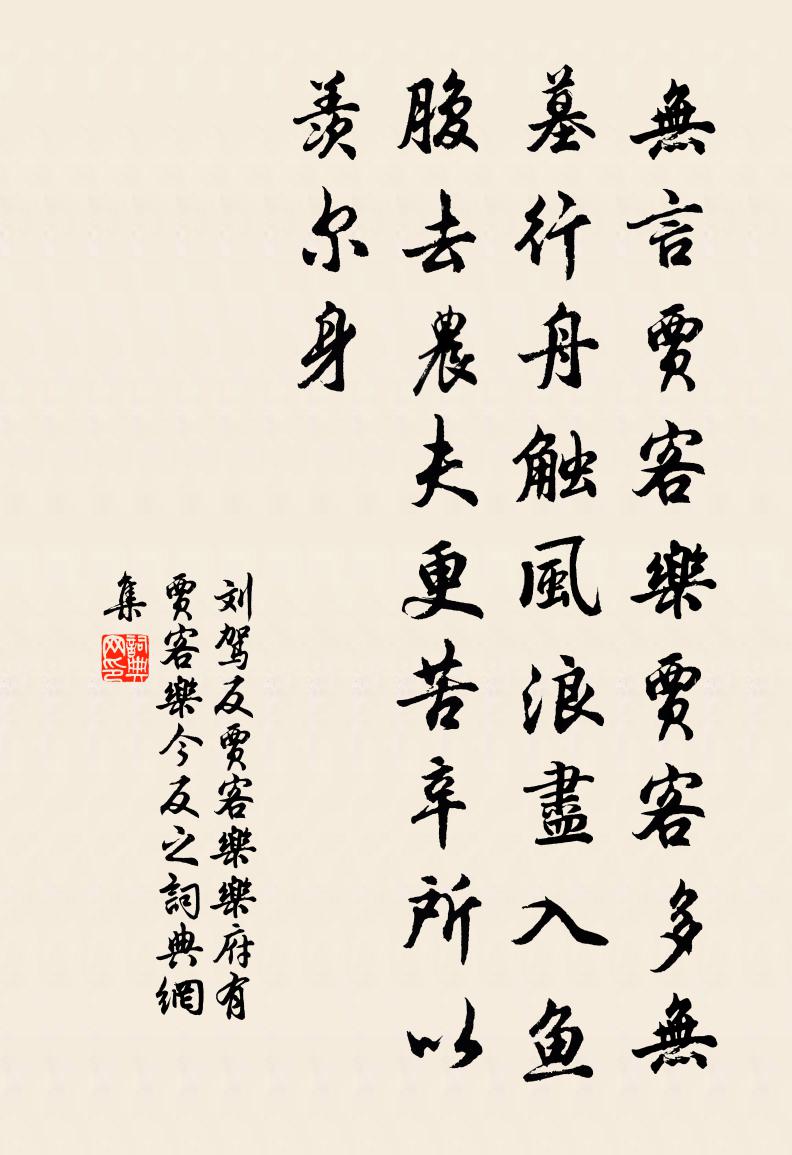 無言賈客樂賈客多無
墓行舟触風浪盡入鱼
腹去農夫更苦辛所以
羨尔身
刘駕反賈客樂樂府有
賈客樂今反之詞典網
集
詞典网印